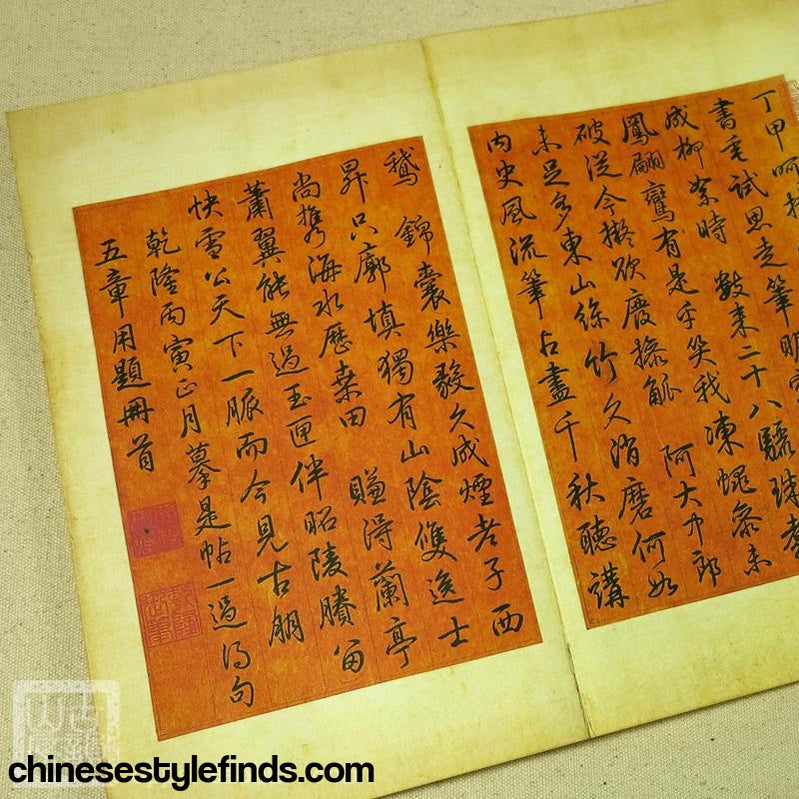 丁甲呵
書重試思走筆明
成柳絮時 數來二十八驪珠
鳳翩鸞有是乎笑我凍蠅參未
破從今擬欲廢操觚 阿大中郎
未足多東山絲竹久消磨何如
内史風流筆占盡千秋聽講
鵝 錦囊樂毅久成煙老子西
昇只廓填獨有山陰雙逸士
尚攜海水歷桑田 賺得蘭亭
蕭翼能無過玉匣伴昭陵賸留
快雪公天下一脈而今見古朋
乾隆丙寅正月摹是帖一過得句
五章用題冊首
chinesestylefinds.com